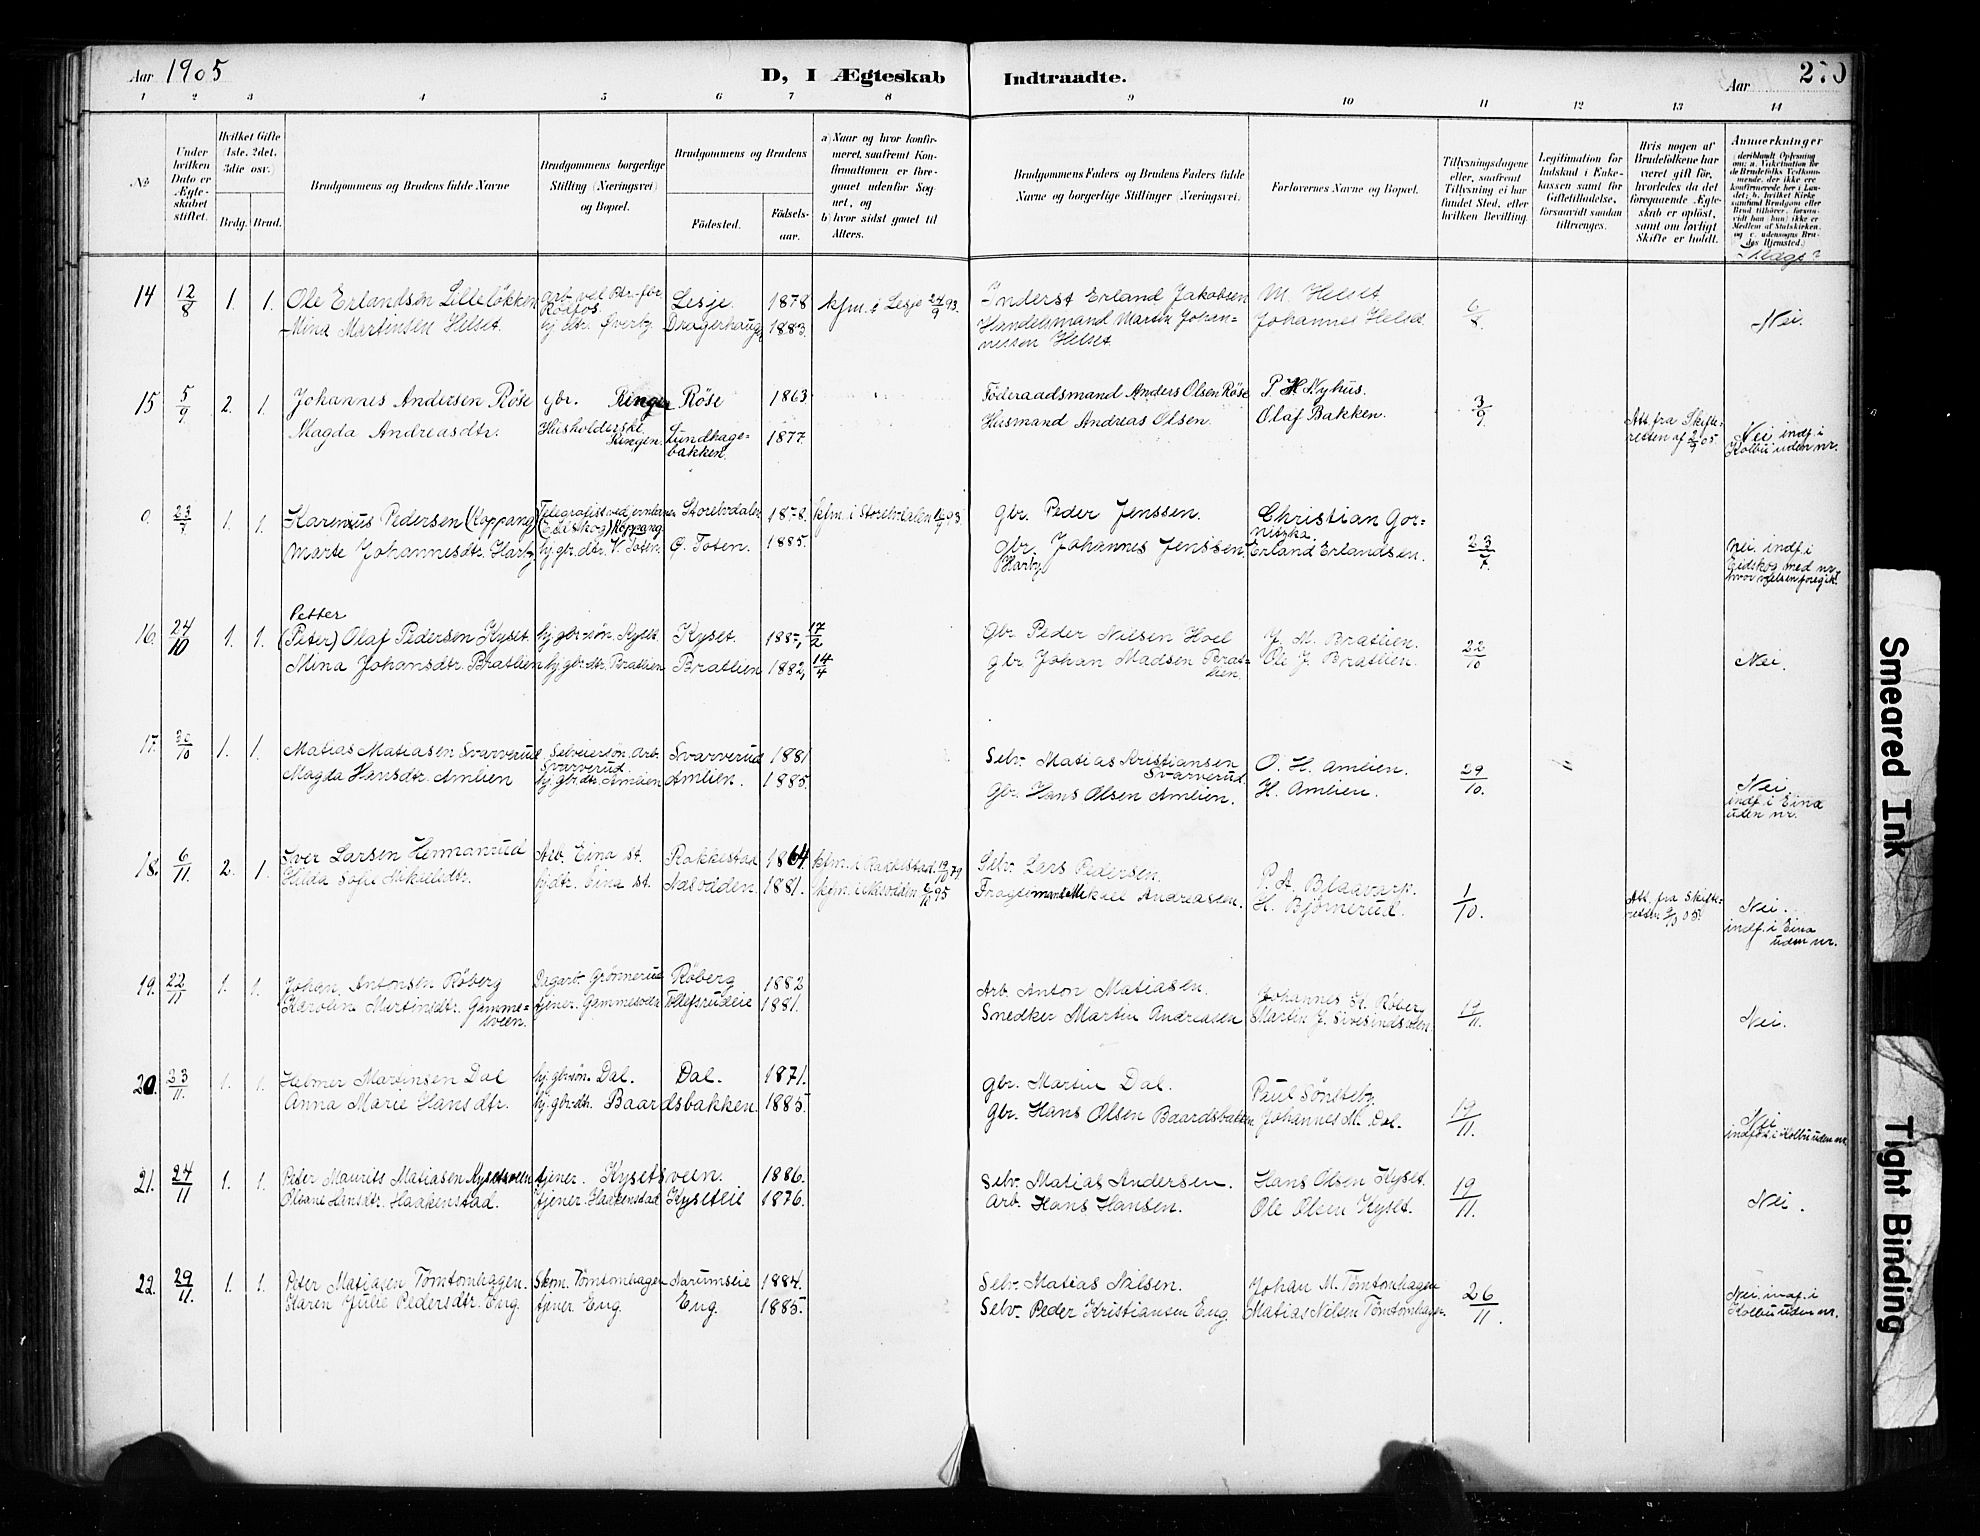 Aar 1905
D, I Ægteskab Indtraadte.
Aar
270
1 2 3 4 5 6 7 8 9 10 11 12 13 14
No
Under hvilken Dato er Ægteskabet stiftet.
Hvilket Gifte 1ste. 2det. 3die osv.
Brdg. Brud.
Brudgommens og Brudens fulde Navne
Brudgommens borgerlige Stilling (Næringsvei) og Bopæl.
Brudgommens og Brudens
Födested.
Födselsaar.
a) Naar og hvor konfirmeret, saafremt Konfirmationen er foregaaet udenfor Sognet, og
b) hvor sidst gaaet til Alters.
Brudgommens Faders og Brudens Faders fulde Navne og borgerlige Stillinger (Næringsvei.
Forlovernes Navne og Bopæl.
Tillysningsdagene eller, saafremt Tillysning ei har fundet Sted, efter hvilken Bevilling.
Legitimation for Indskud i Enkekassen samt for Giftetilladelse, forsaavidt saadan tiltrænges.
Hvis nogen af Brudefolkene har været gift för, hvorledes da det foregaaende Ægteskab er oplöst, samt om lovligt Skifte er holdt.
Anmærkninger
14 12/8 1. 1. Ole Erlandsen Lilleløkken Lesje. 1878 kfm. i Lesje 24/9 93. Inderst Erland Jakobsen M. Helset. 6/8
Mina Martinsen Helset. Øverby. 1883. Handelsmand Martin Johannessen Helset. Johannes Helset Nei.
15 5/9 2. 1. Johannes Andersen Röse gbr. Ringen Röse 1863 Føderaadsmand Anders Olsen Röse P. H. Nyhus. 3/9
Magda Andreasdtr. Husholderske Ringen. Lundhagebakken. 1877. Husmand Andreas Olsen. Olaf Bakken. Att. fra Skifteretten af Nei indf. i Kolbu uden nr.
0. 23/7 1. 1. Karenius Pedersen (Koppang) (Eidskog) Koppang 1878. gbr. Peder Jenssen. Christian Gornitzka. 23/7.
Marte Johannesdtr. Harby hj. gbr. dtr. V. Toten Ø. Toten. 1885. gbr. Johannes Jenssen Harby Erland Erlandsen. Nei. indf. i Eidskog med nr.
Petter
16. 24/10 1. 1. (Peter) Olaf Pedersen Kyset. hj. gbr. søn. Kyset Kyset. 17/2 gbr Peder Nilsen Hoel J. M. Bratlien. 22/10
Mina Johansdtr. Bratlien hj. gbr. dtr. Bratlien Bratlien 1882, 14/4 gbr Johan Madsen Bratlien. Ole J. Bratlien. Nei.
17. 30/10 1. 1. Matias Matiasen Svarverud Selveiersøn. Arb. Svarverud Svarverud 1881 Selv. Matias Kristiansen Svarverud. O. H. Amlien. 29/10.
Magda Hansdtr. Amlien hj. gbr. dtr. Amlien Amlien. 1885. Gbr. Hans Olsen Amlien. H. Amlien. Nei. indf. i Eina uden nr.
18. 6/11 2. 1. Iver Larsen Hermanrud Arb. Eina st. Rakkestad 1864 kfm. i Rakkestad. Selv. Lars Pedersen. P. A. Blaavarp. 1/10.
Hilda Sofie Mikelsdtr. Eina st. Næsodden. 1881. kfm. i Næsodden Mikael Andreasen. H. Bjørnerud. Att. fra Skifteretten Nei. indf. i Eina uden nr.
19. 22/11 1. 1. Johan Antonsen Røberg Dagarb. Grønnerud Røberg 1882 Arb. Anton Matiasen. 17/11.
Karolin Martinsdtr. Gammesveen. tjener. 1881. Snedker Martin Andreasen Nei.
20. 23/11. 1. 1. Helmer Martinsen Dal hj. gbrsøn. Dal. Dal. 1871. gbr. Martin Dal. Paul Sønsteby 19/11.
Anna Marie Hansdtr. hj. gbr. dtr. Baardsbakken. 1885. Gbr. Hans Olsen Baardsbakken Johannes M. Dal. Nei indført i Kolbu uden nr.
21. 24/11 1. 1. Peter Maurits Matiasen Kysetsveen tjener. Kysetsveen. 1886. Selv. Matias Andersen. Hans Olsen Kyset. 19/11.
Oleane Hansdtr. Haakenstad. tjener. Haakenstad Kyseteie 1876. Arb. Hans Hansen. Ole Olsen Kyset. Nei.
22. 29/11. 1. 1. Peter Matiasen Tømtomhagen. Skom. Tømtomhagen Narumseie 1884. Selv. Matias Nilsen. Johan M. Tømtomhagen 26/11.
Karen Julie Pedersdtr. Eng. tjener Eng. Eng. 1885. Selv. Peder Kristiansen Eng. Matias Nilsen Tømtomhagen. Nei. indf. i Kolbu uden nr.
Smeared Ink
Tight Binding